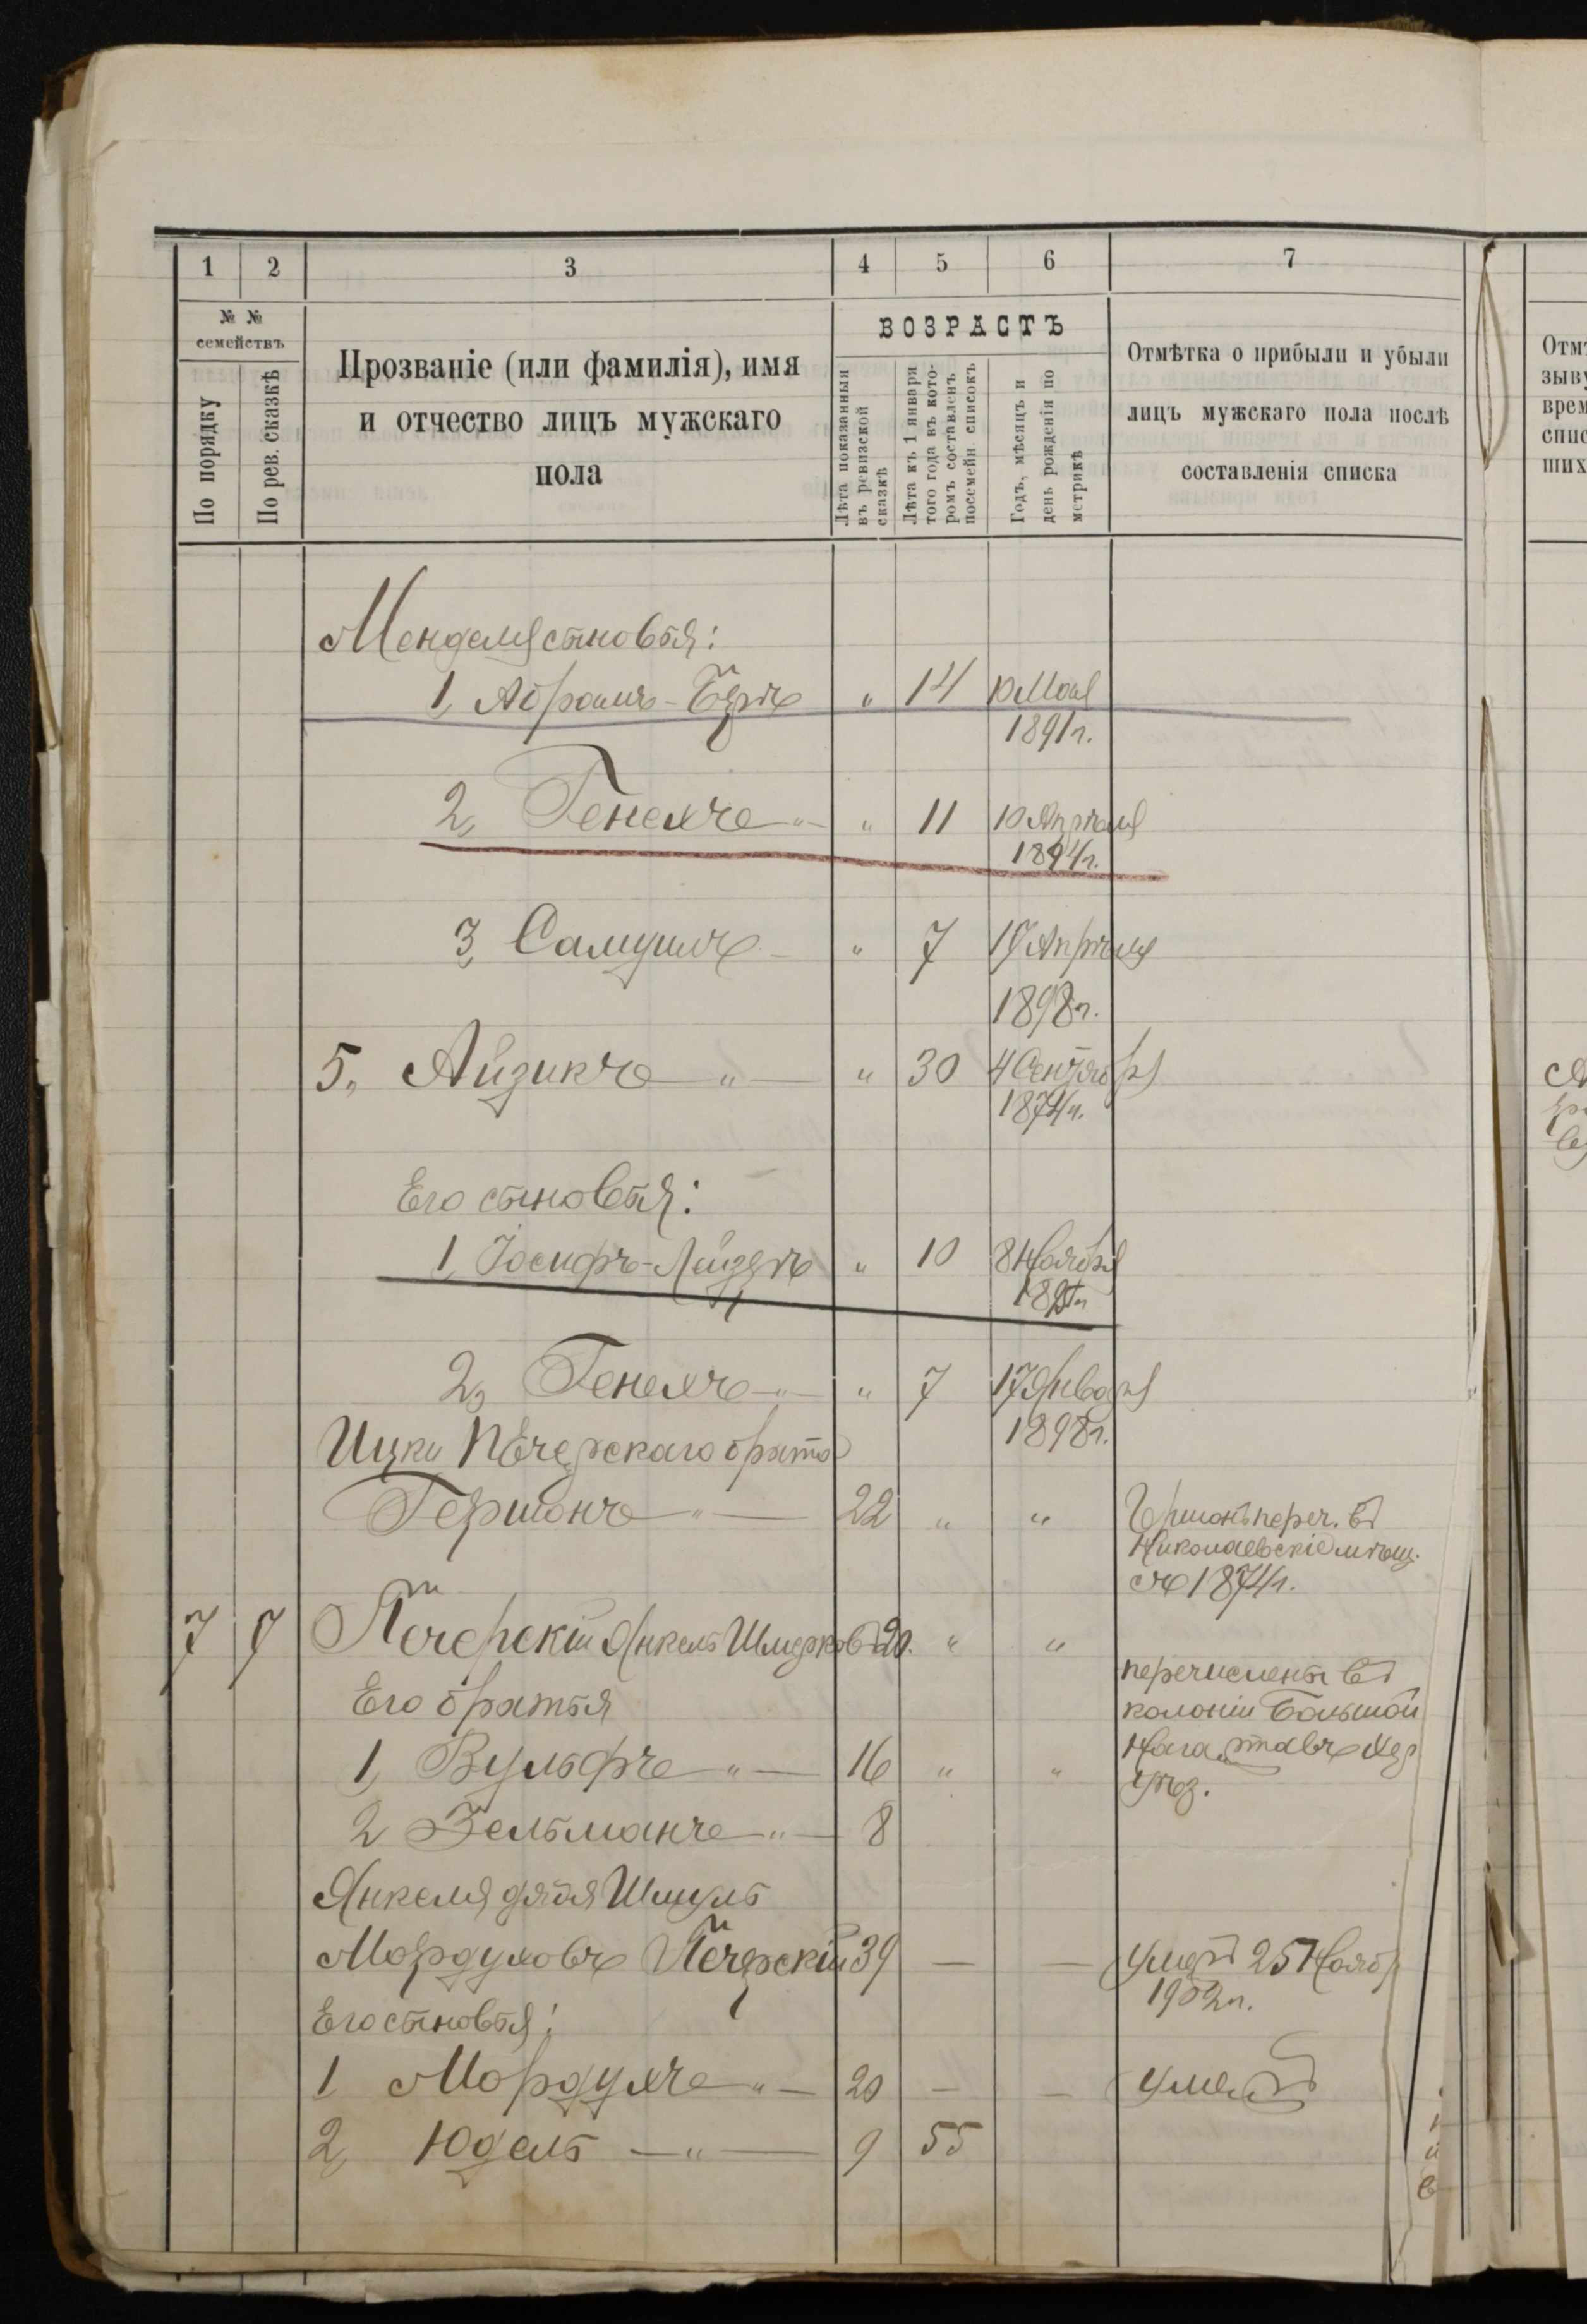 1 2 3 4 5 6 7
№ №
семействъ
По порядку
По рев. сказкѣ
Прозваніе (или фамилія), имя
и отчество лицъ мужскаго
пола
ВОЗРАСТЪ
Лѣта показанныя
въ ревизской
сказкѣ
Лѣта къ 1 января
того года въ кото-
ромъ составленъ
посемейн списокъ
Годъ, мѣсяцъ и
день рожденія по
метрикѣ
Отмѣтка о прибыли и убыли
лицъ мужскаго пола послѣ
составленія списка
Менделя сыновья:
1, Абрамъ-Беръ " 14 10 Мая
1891 г.
2, Генехъ " " 11 10 Апрѣля
1894 г.
3, Самуилъ " 7 19 Апрѣля
1898 г.
5., Айзикъ " " 30 4 Сентябр
1874 г.
Его сыновья:
1, Іосифъ-Лейзеръ " 10 8 Ноября
2, Генехъ " " 7 17 Января
1898 г.
Ицки Печерскаго братъ
Гершонъ " 22 " " Гершонъ переч. въ
Николаевскіе мѣщ.
съ 1874 г.
7 7 Печерскій Янкель Шмерков 20. " "
перечислены въ
Его братья
колоніи Большой
1, Вульфъ " 16 " " Нагартавъ Хер
уѣз.
2 Зельманъ " 8
Янкеля дядя Шмуль
Мордуховъ Печерскій 39 — — умеръ 25 Ноябр
1902 г.
Его сыновья:
1 Мордухъ " 20 — — умеръ
2, Юдель " 9 55